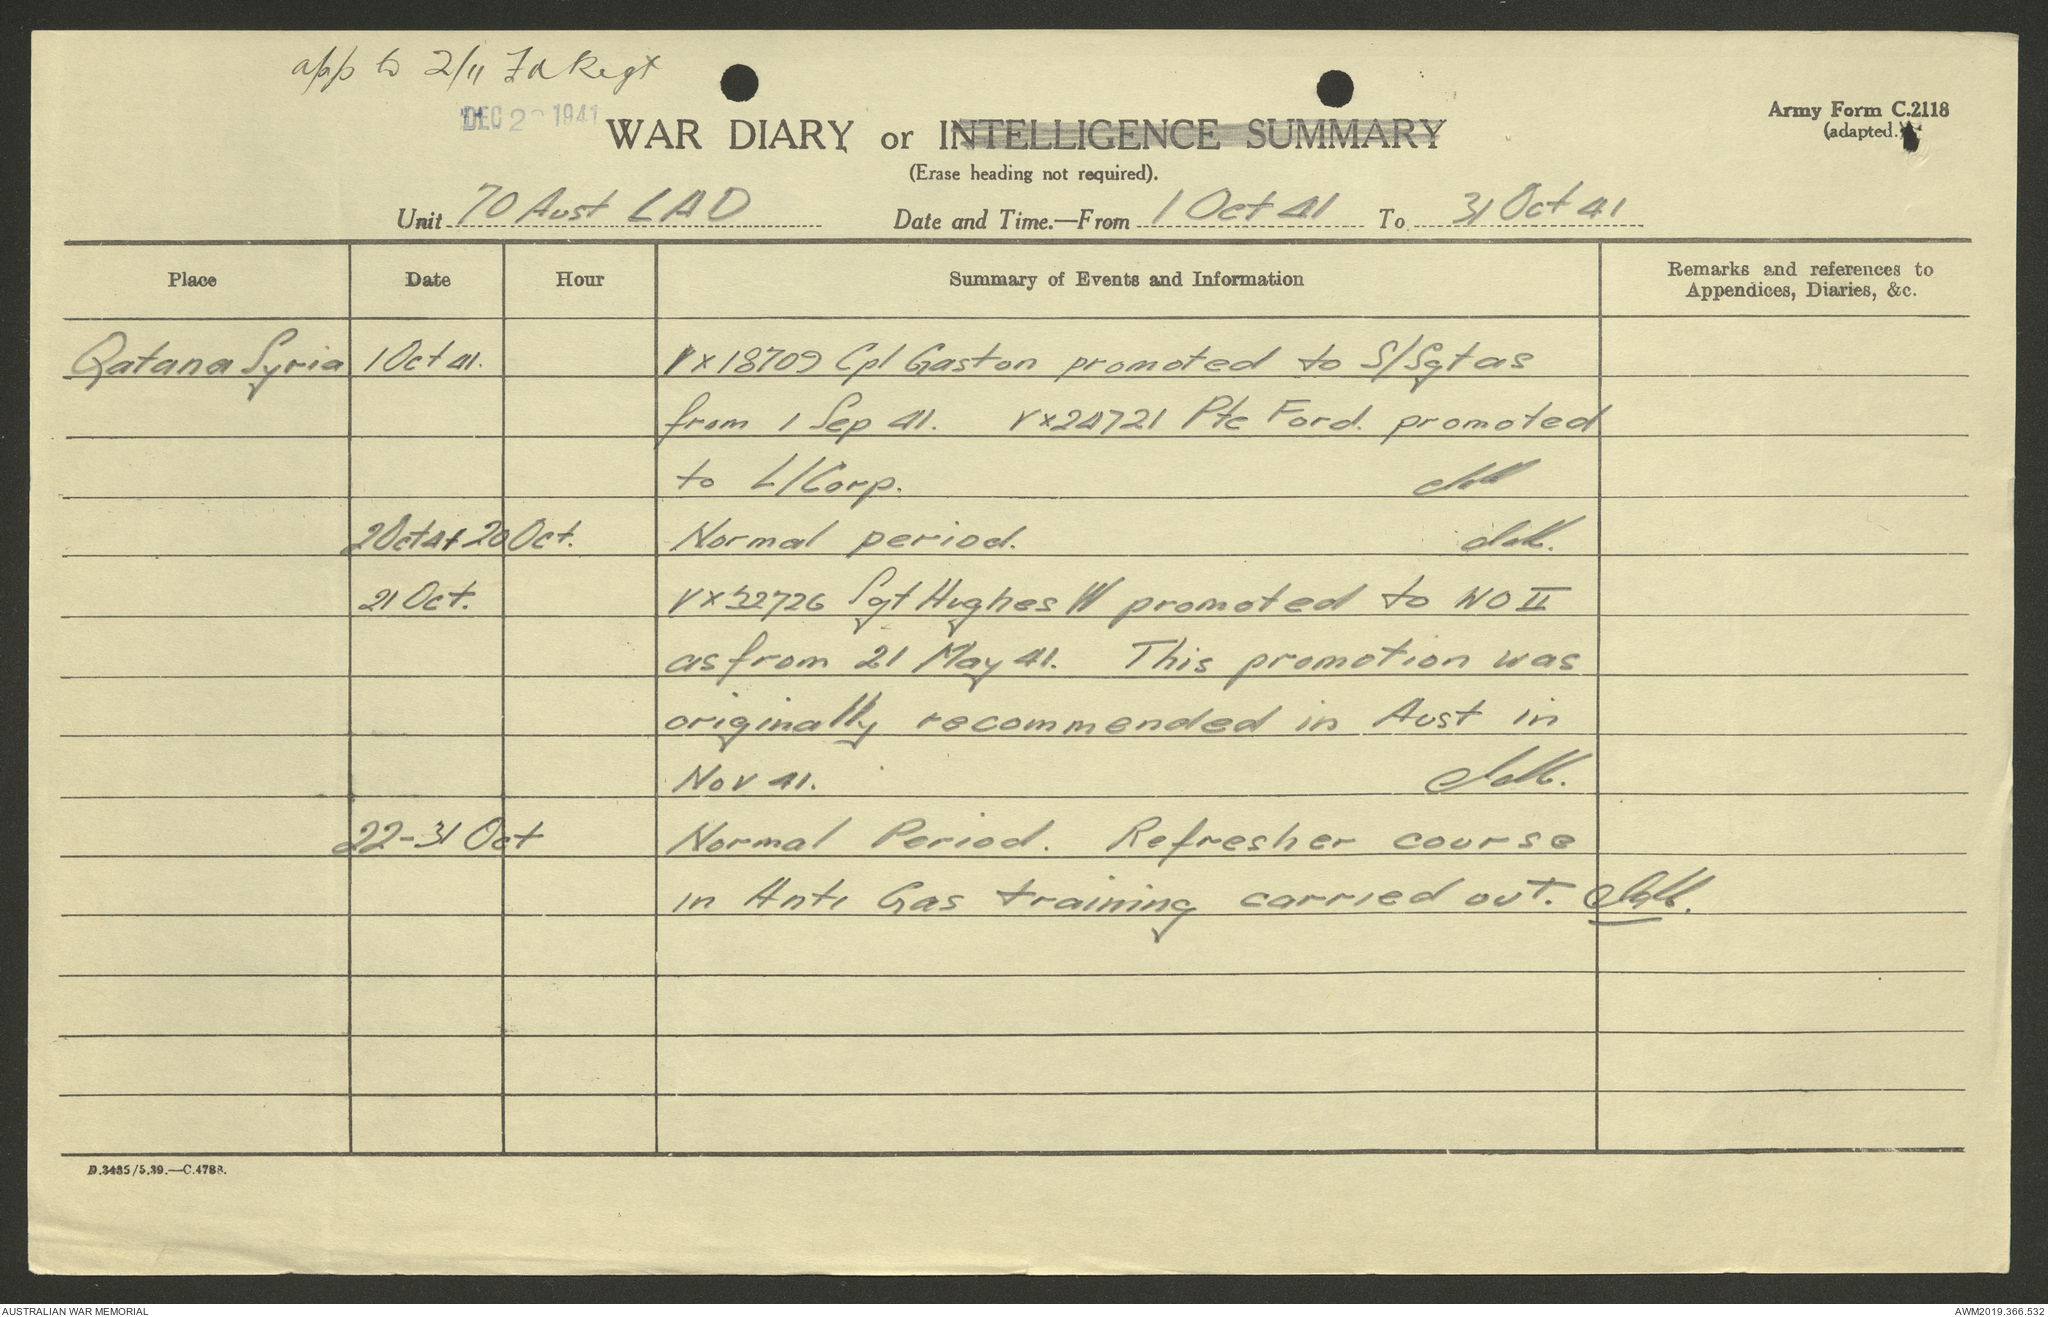 app to 2/11 Fd Regt
DEC 2 1941
Army Form C.2118
(adapted.)
WAR DIARY or INTELLIGENCE SUMMARY
(Erase heading not required).
Unit 70 Aust LAD Date and Time.—From 1 Oct 41 To 31 Oct 41
Place Date Hour Summary of Events and Information Remarks and references to
Appendices, Diaries, &c.
Qatana Syria 1 Oct 41. VX18709 Cpl Gaston promoted to S/Sgt as
from 1 Sep 41. VX24721 Pte Ford. promoted
to L/Corp.
2 Oct 41 20 Oct. Normal period.
21 Oct. VX32726 Sgt Hughes W promoted to WO II
as from 21 May 41. This promotion was
originally recommended in Aust in
Nov 41.
22-31 Oct Normal Period. Refresher course
in Anti Gas training carried out.
D.3435/5.39.—C.4788.
AUSTRALIAN WAR MEMORIAL
AWM2019.366.532